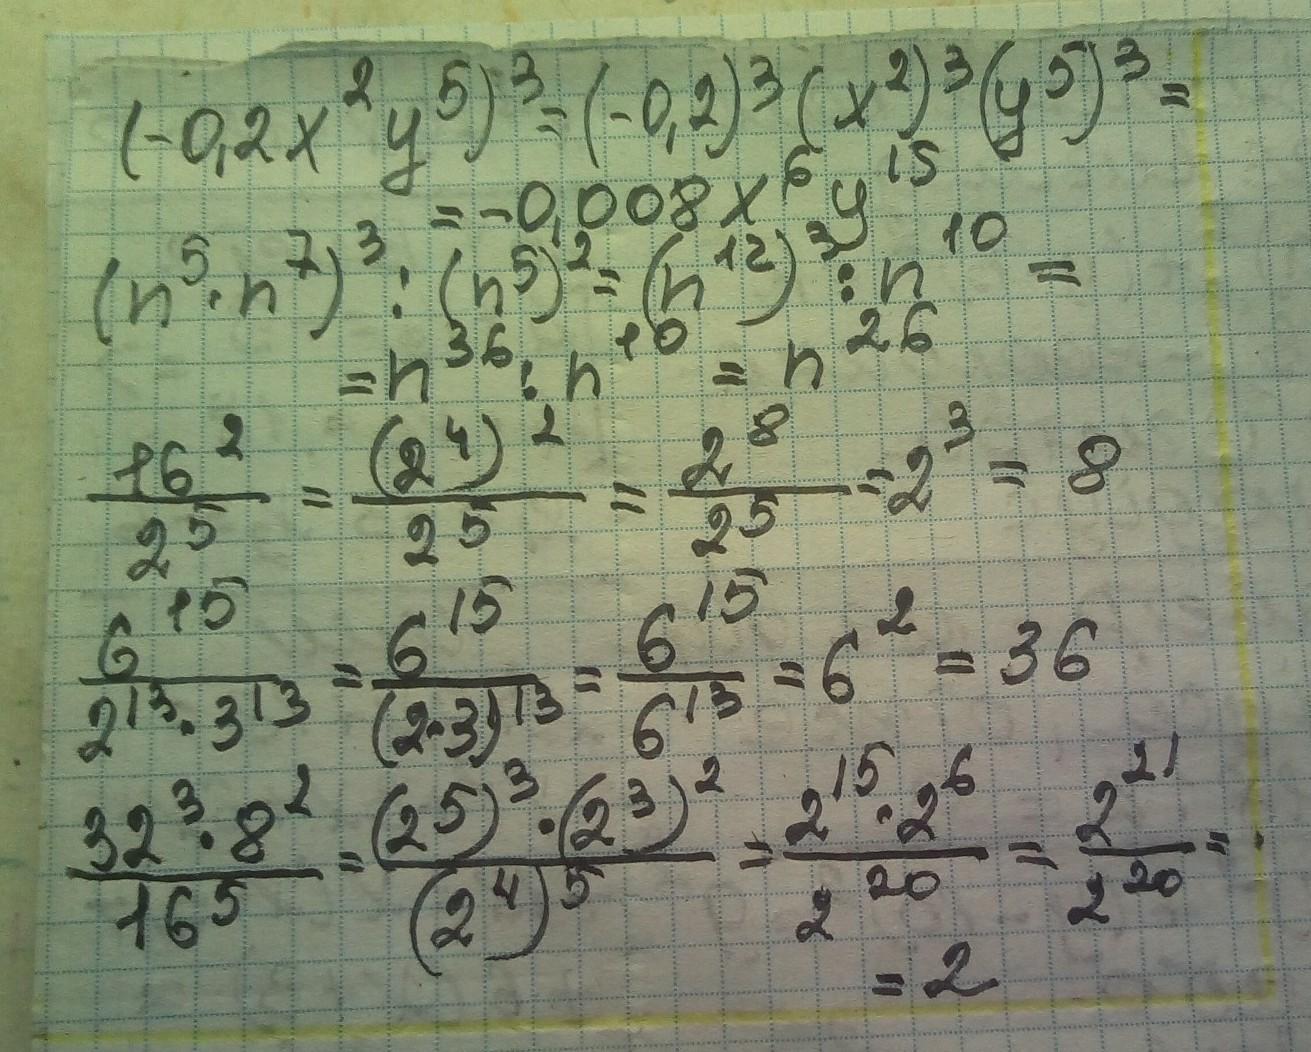 (-0,2x²y⁵)³=(-0,2)³(x²)³(y⁵)³=
=-0,008x⁶y¹⁵
(n⁵·n⁷)³:(n⁵)²=(n¹²)³:n¹⁰=
=n³⁶:n¹⁰=n²⁶
16²/2⁵=(2⁴)²/2⁵=2⁸/2⁵=2³=8
6¹⁵/2¹³·3¹³=6¹⁵/(2·3)¹³=6¹⁵/6¹³=6²=36
32³·8²/16⁵=(2⁵)³·(2³)²/(2⁴)⁵=2¹⁵·2⁶/2²⁰=2²¹/2²⁰=
=2